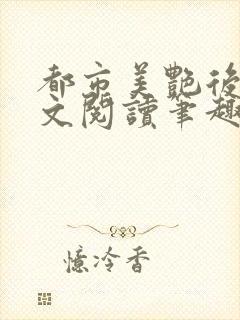 都市美艷後
文閱讀筆趣
憶泠香